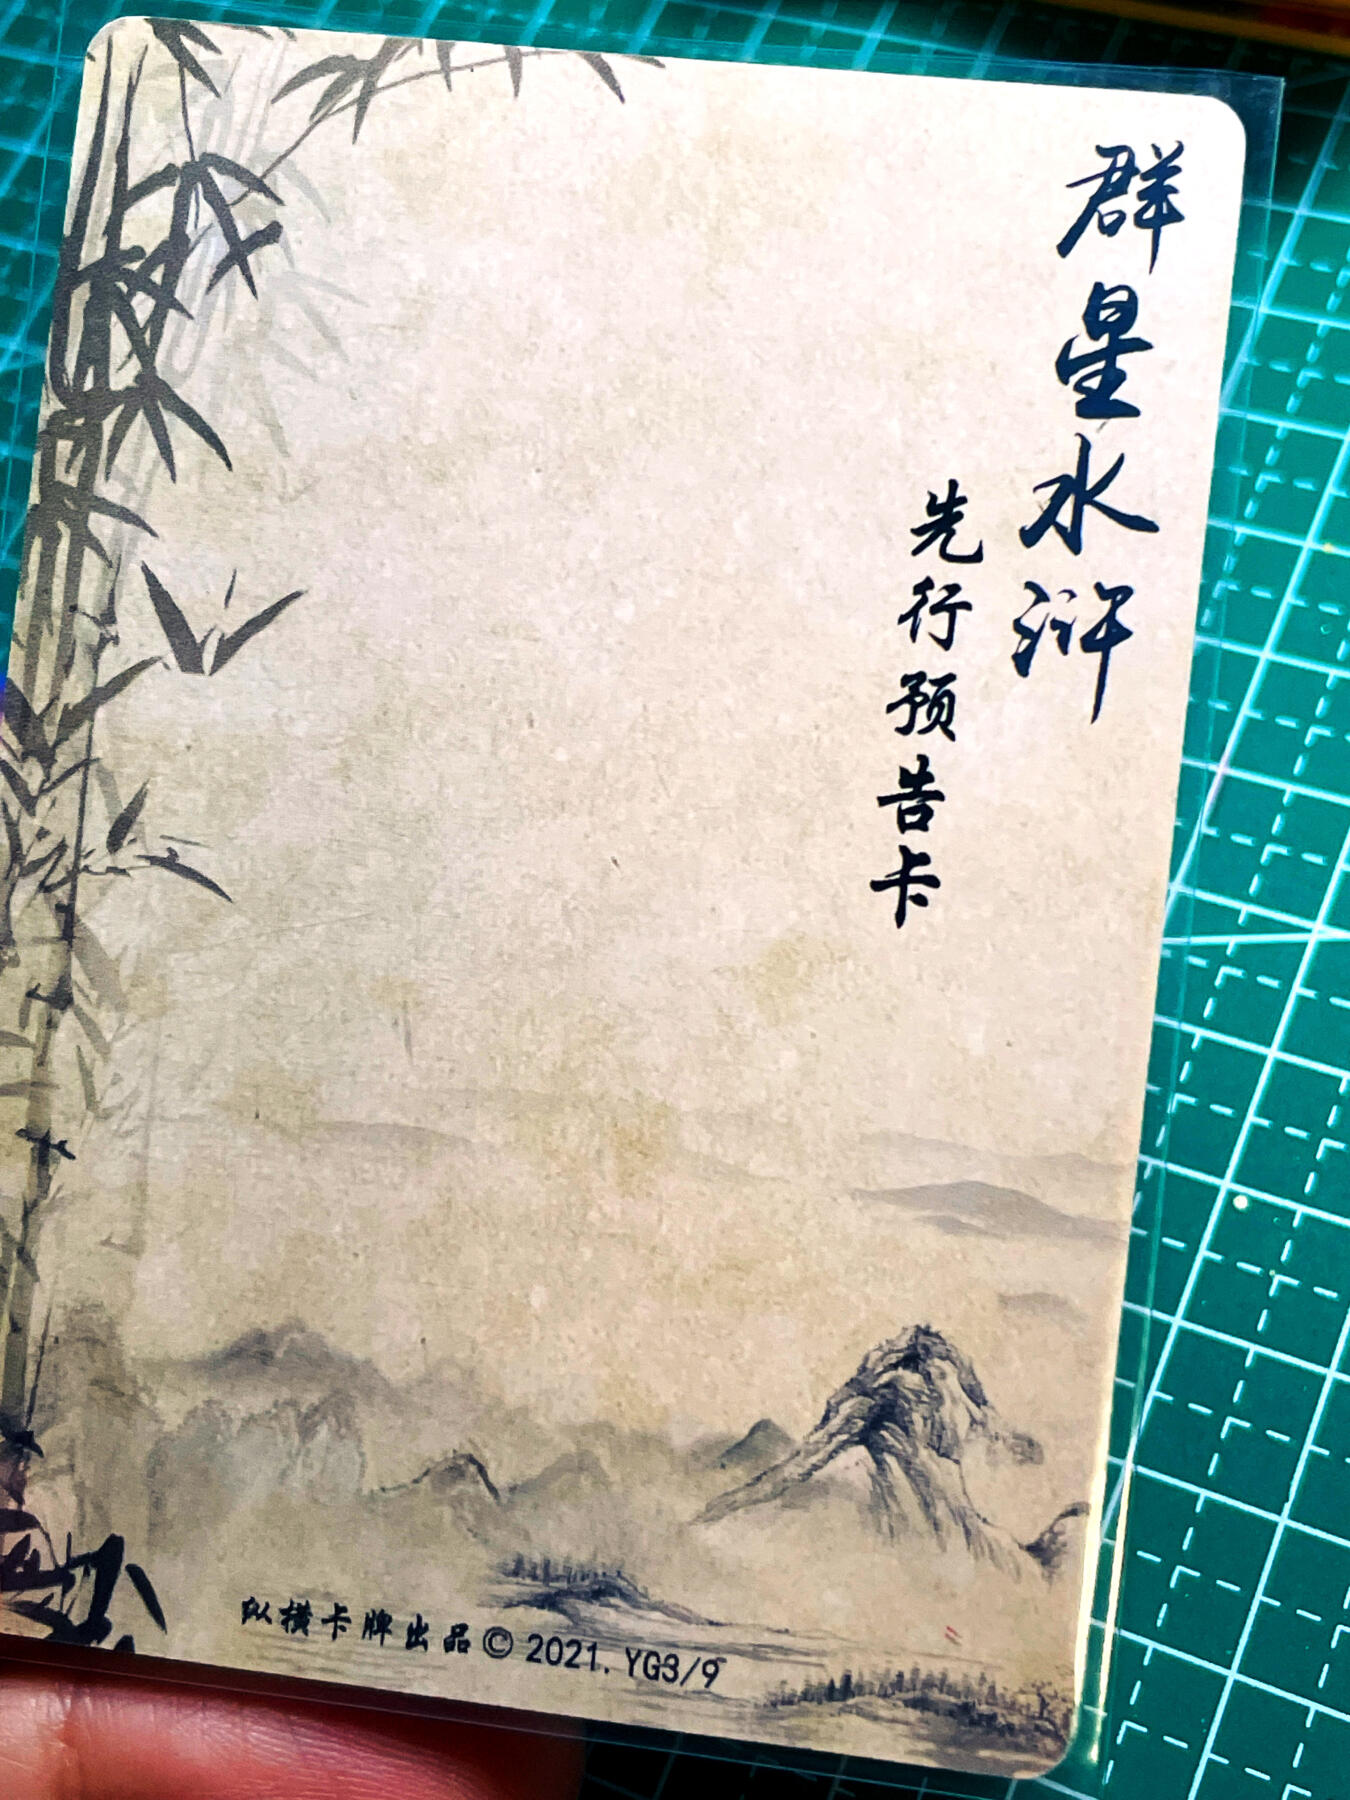 群星水浒
先行预告卡
纵横卡牌出品© 2021. YG3/9